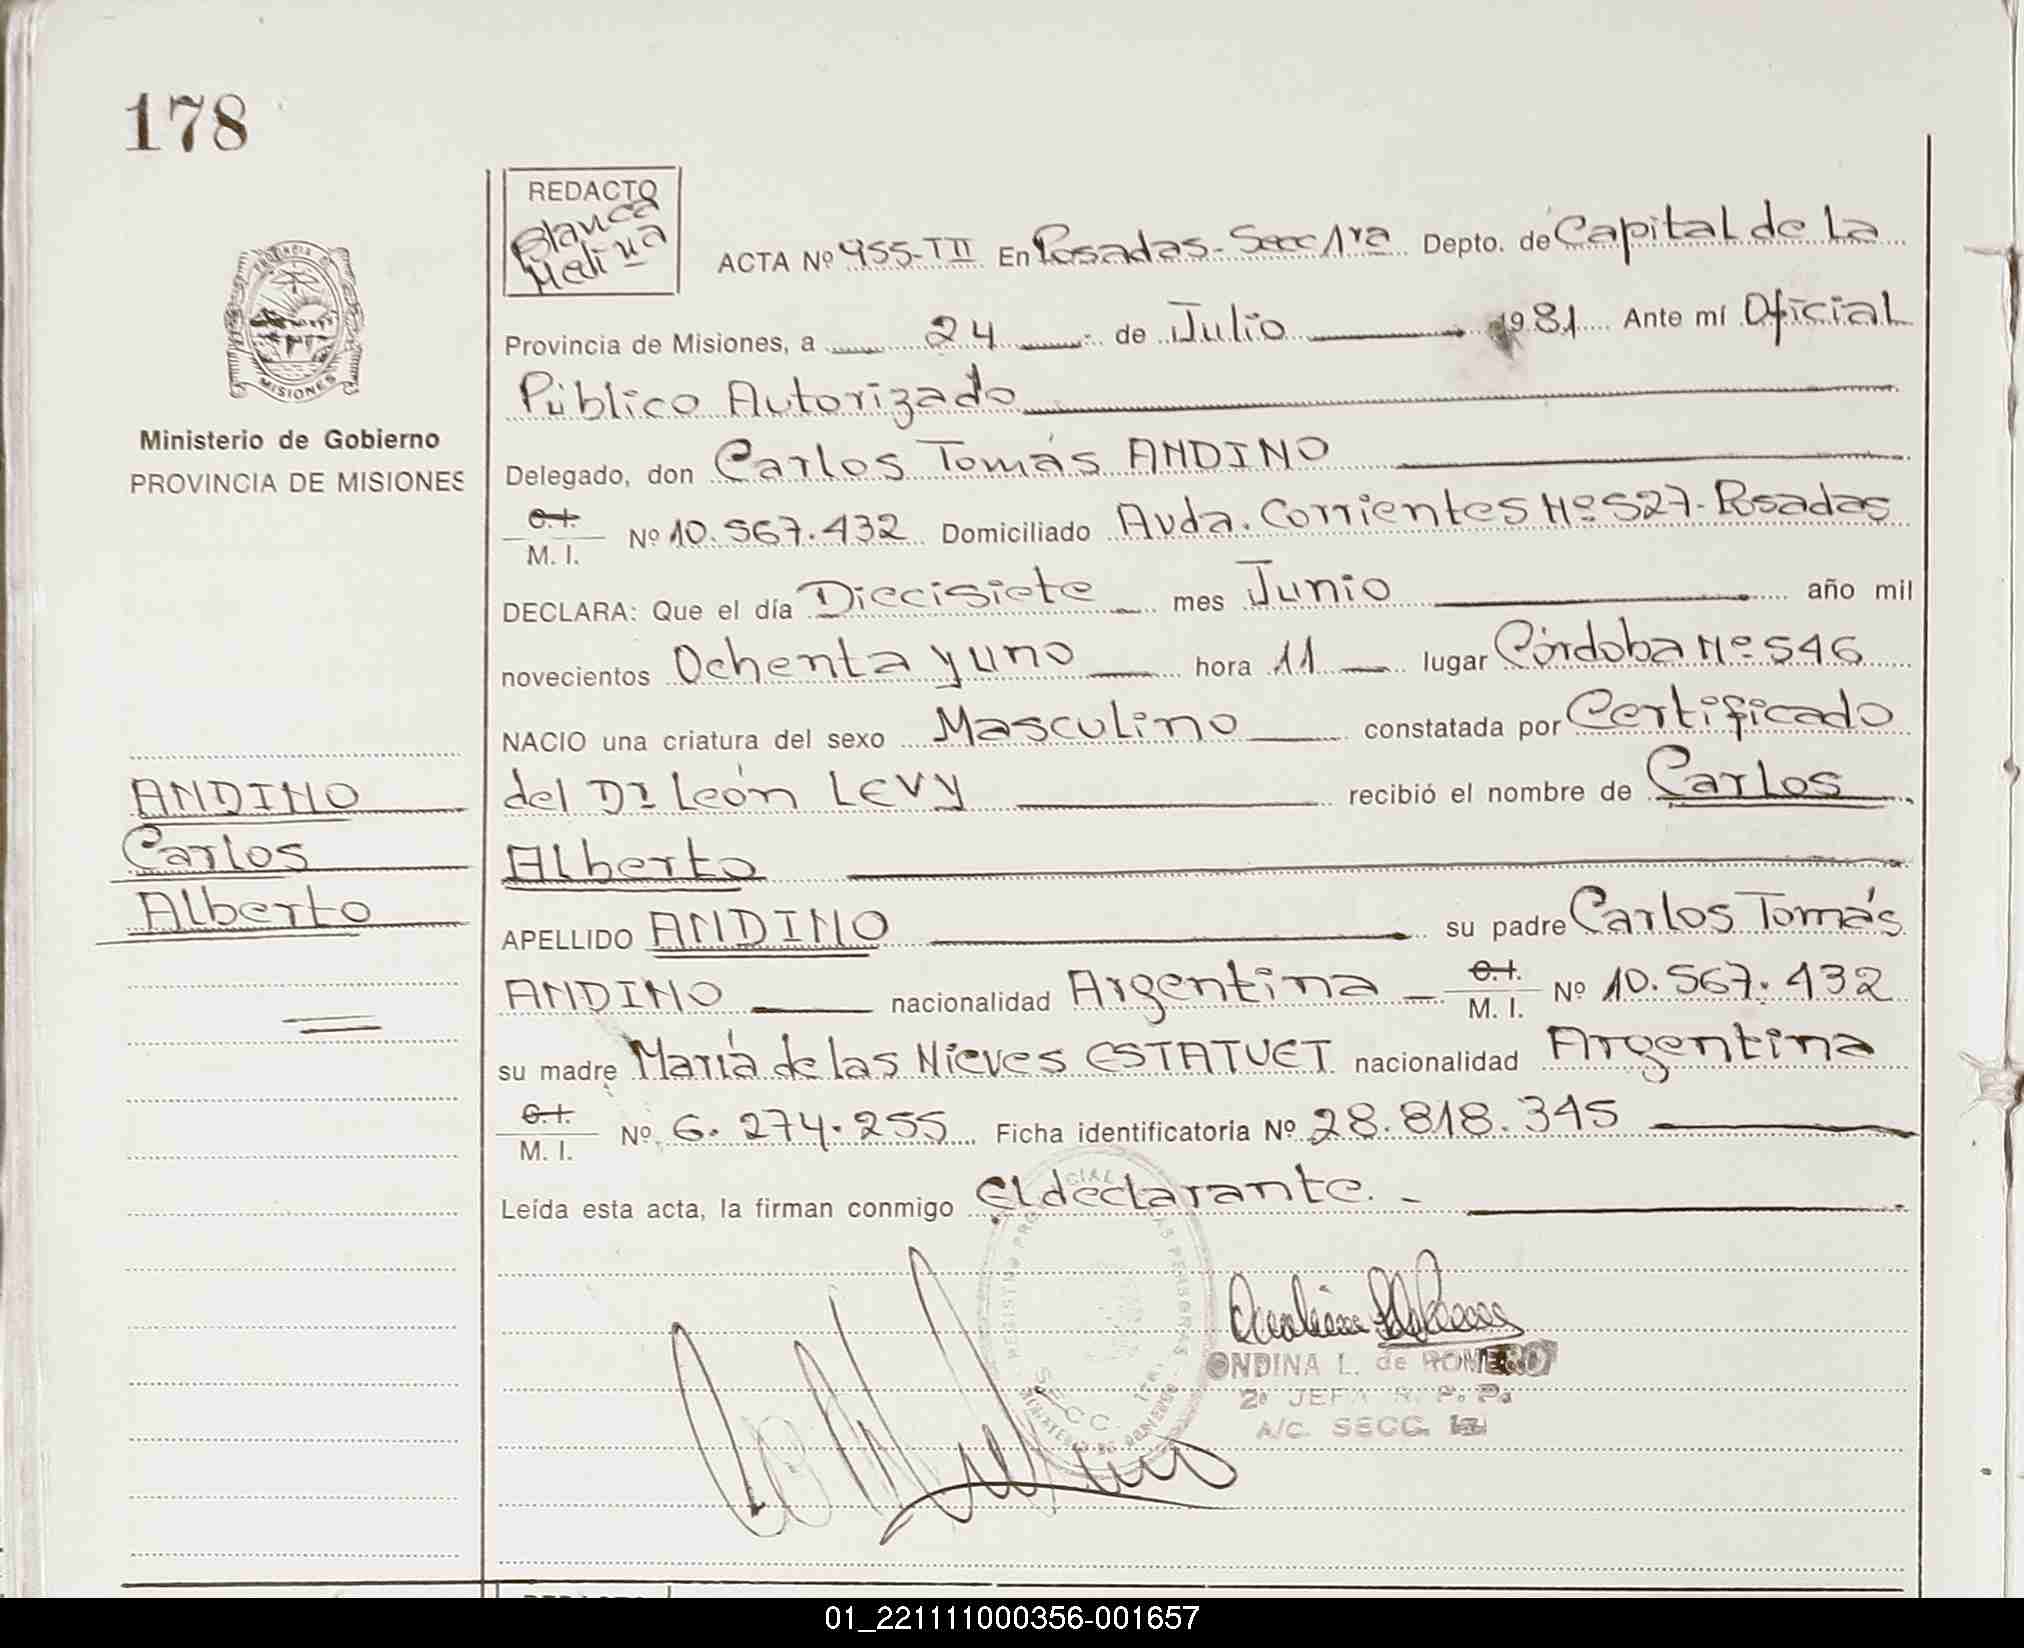 178
REDACTO
Blanca
Melina
ACTA Nº 955-TII En Posadas-Secc 1ra Depto. de Capital de La
Provincia de Misiones, a 24 de Julio 1981 Ante mí Oficial
Público Autorizado
MISIONES
Ministerio de Gobierno
PROVINCIA DE MISIONES
Delegado, don Carlos Tomás ANDINO
C.I.
M. I. Nº 10.567.432 Domiciliado Avda. Corrientes Nº 527-Posadas
DECLARA: Que el día Diecisiete mes Junio año mil
novecientos Ochenta y uno hora 11 lugar Córdoba Nº 546
NACIO una criatura del sexo Masculino constatada por Certificado
del Dr León LEVY recibió el nombre de Carlos
Alberto
ANDINO
Carlos
Alberto
APELLIDO ANDINO su padre Carlos Tomás
ANDINO nacionalidad Argentina C.I. M. I. Nº 10.567.432
su madre María de las Nieves ESTATUET nacionalidad Argentina
C.I.
M. I. Nº 6.274.255 Ficha identificatoria Nº 28.818.345
Leída esta acta, la firman conmigo El declarante.-
ONDINA L. de ROMERO
2º JEFA R. P. P.
A/C. SECC. 1a
01_221111000356-001657